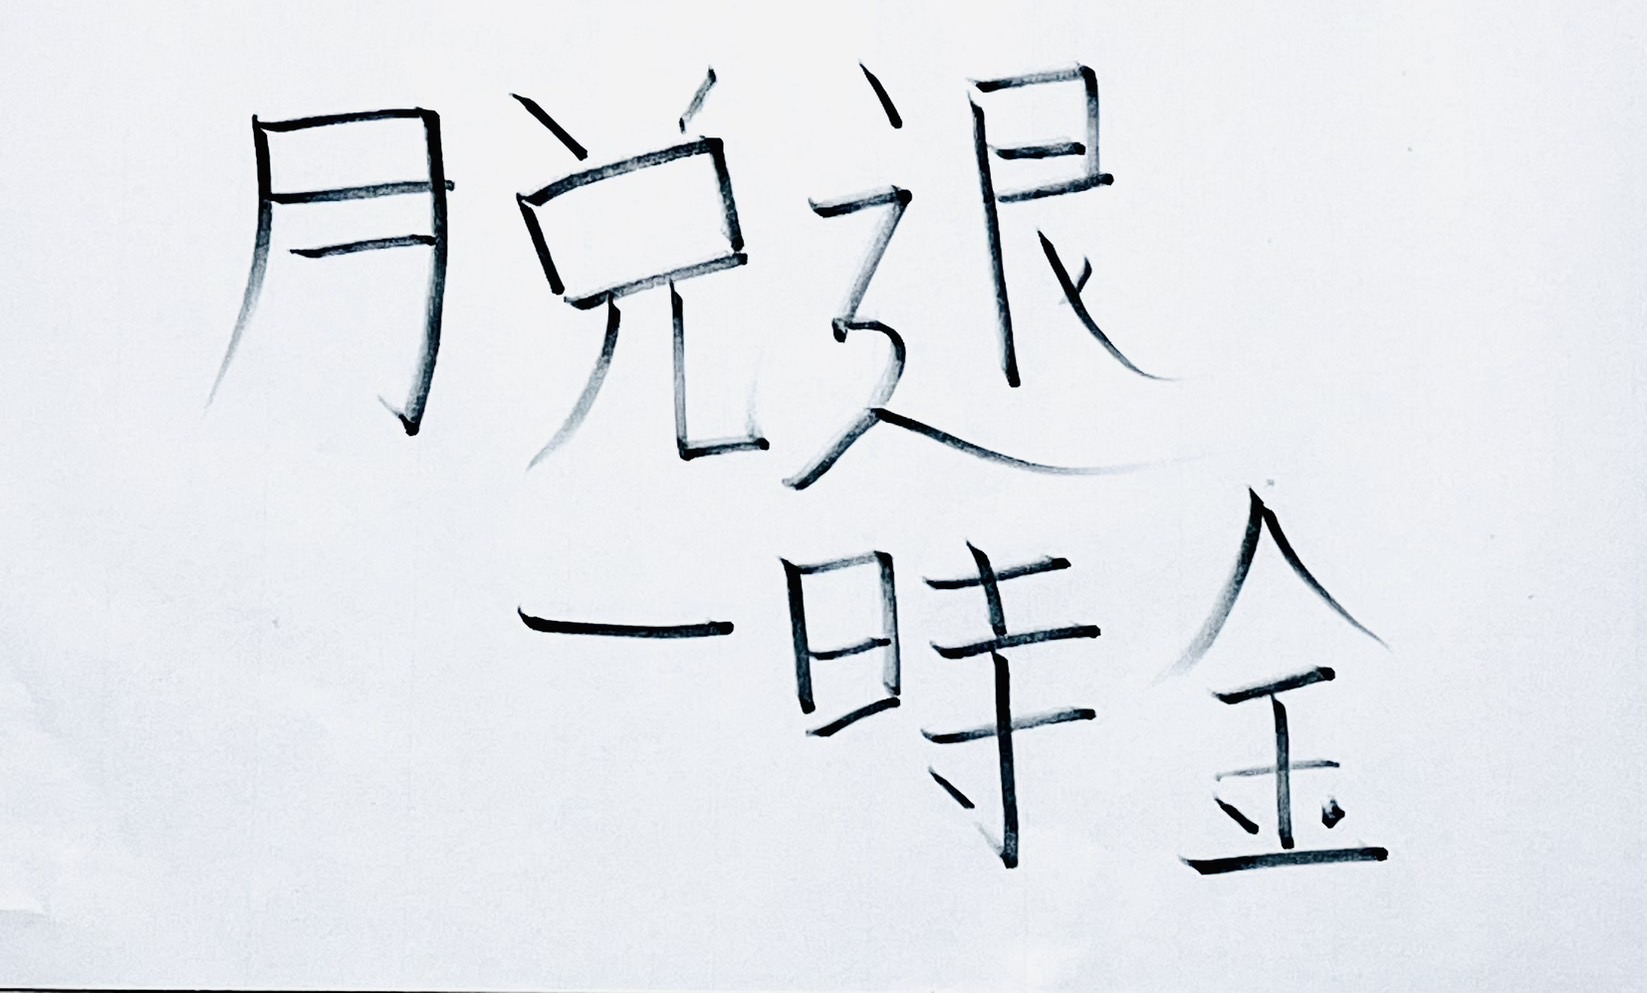 脱退
一時金